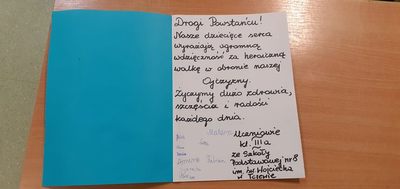 Drogi Powstańcu!
Nasze dziecięce serca
wyrażają ogromną
wdzięczność za heroiczną
walkę w obronie naszej
Ojczyzny.
Życzymy dużo zdrowia,
szczęścia i radości
każdego dnia.
Uczniowie
kl. III a
ze Szkoły
Podstawowej nr 8
im. św. Wojciecha
w Tczewie